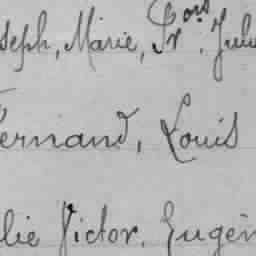 seph, Marie, Fr^ois. Jule
ernand, Louis
lie Victor. Eugèn